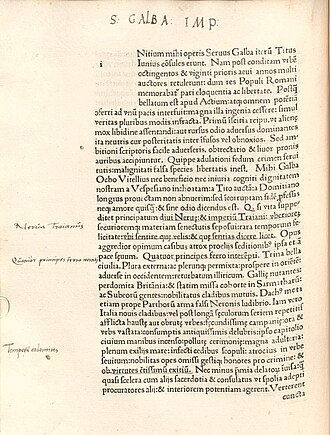 S. GALBA. IMP.
i
Nitium mihi operis Seruus Galba iterū Titus
Iunius cōsules erunt. Nam post conditam vrbē
octingentos & viginti prioris aeui annos multi
auctores retulerunt: dum res Populi Romani
memorabāt pari eloquentia ac libertate. Postq̄
bellatum est apud Actium: atq; omnem potētiā
ad vnū pacis interfuit: magna illa ingenia cessere: simul
veritas pluribus modis infracta. Primū īscitia reipu. vt alienę
mox libidine assentandi: aut rursus odio aduersus dominantes
ita neutris cur posteritatis inter infisos vel obnoxios. Sed am/
bitionem scriptoris facile aduerseris, obtrectatio & liuor pronis
auribus accipiuntur. Quippe adulationi fedum crimen serui
tutis: malignitati falsa species libertatis inest. Mihi Galba
Ocho Vitellius nec beneficio nec iniuria cogniti dignitatem
nostram a Vespesiano inchoatam: a Tito auctā: a Domitiano
longius prouectam non abnuerim: sed
neq; amore & sine odio dicendus est. Q; si vita suppe
ditet principatum diui Neruę: & imperiū Traiani: vberiorem
securioremq; materiam senectuti seposui: rara temporum fe/
licitate: vbi sentire quę velis: & quę sentias dicere licet. Opus
aggredior opimum casibus atrox proeliis seditionibꝰ ipsa et iā
pace sęuum. Quatuor principes ferro interēpti. Trina bella
ciuilia. Plura externa: ac plerumq; permixta: prospere in oriēte:
aduersę in occidente: turbatum illiricum. Gallię nutantes:
perdomita Britānia: & statim missa cohorte in Sarmathārū:
ac Sueborū gentes: nobilitatus cladibus mutuis. Dachꝰ mota
etiam prope Parthorū arma falsi Neronis ludibrio. Iam vero
Italia nouis cladibus: vel post longā seculorum seriem repetitis
afflicta haustę aut obrutę vrbes: fecundissime campanię ora: &
vrbs vastata: consumptis antiquissimis delubris: ipso capitolio
ciuium manibus incenso: pollutę cerimonię: magna adulteria:
plenum exiliis mare: infecti cędibus scopuli: atrocius in vrbe
seuitum: nobilitas opes omissi gestiq; honores pro crimine: &
ob virtutes certissimū exitiū. Nec minus pmia delatorū: inuisa
quā scelera cum alii sacerdotia & consulatus vt spolia adepti
procurationes alii: & interiorem potentiam agerent. Verterent
cuncta
Neruia Traianus
Quatuor principes ferro